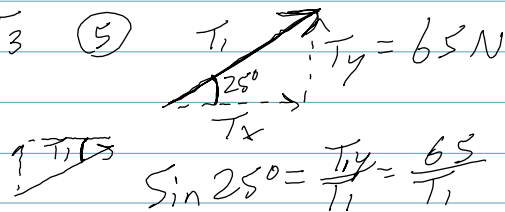 T3 ⑤ T1 Ty = 65N
25°
Tx
T1
Sin 25° = T1y/T1 = 65/T1